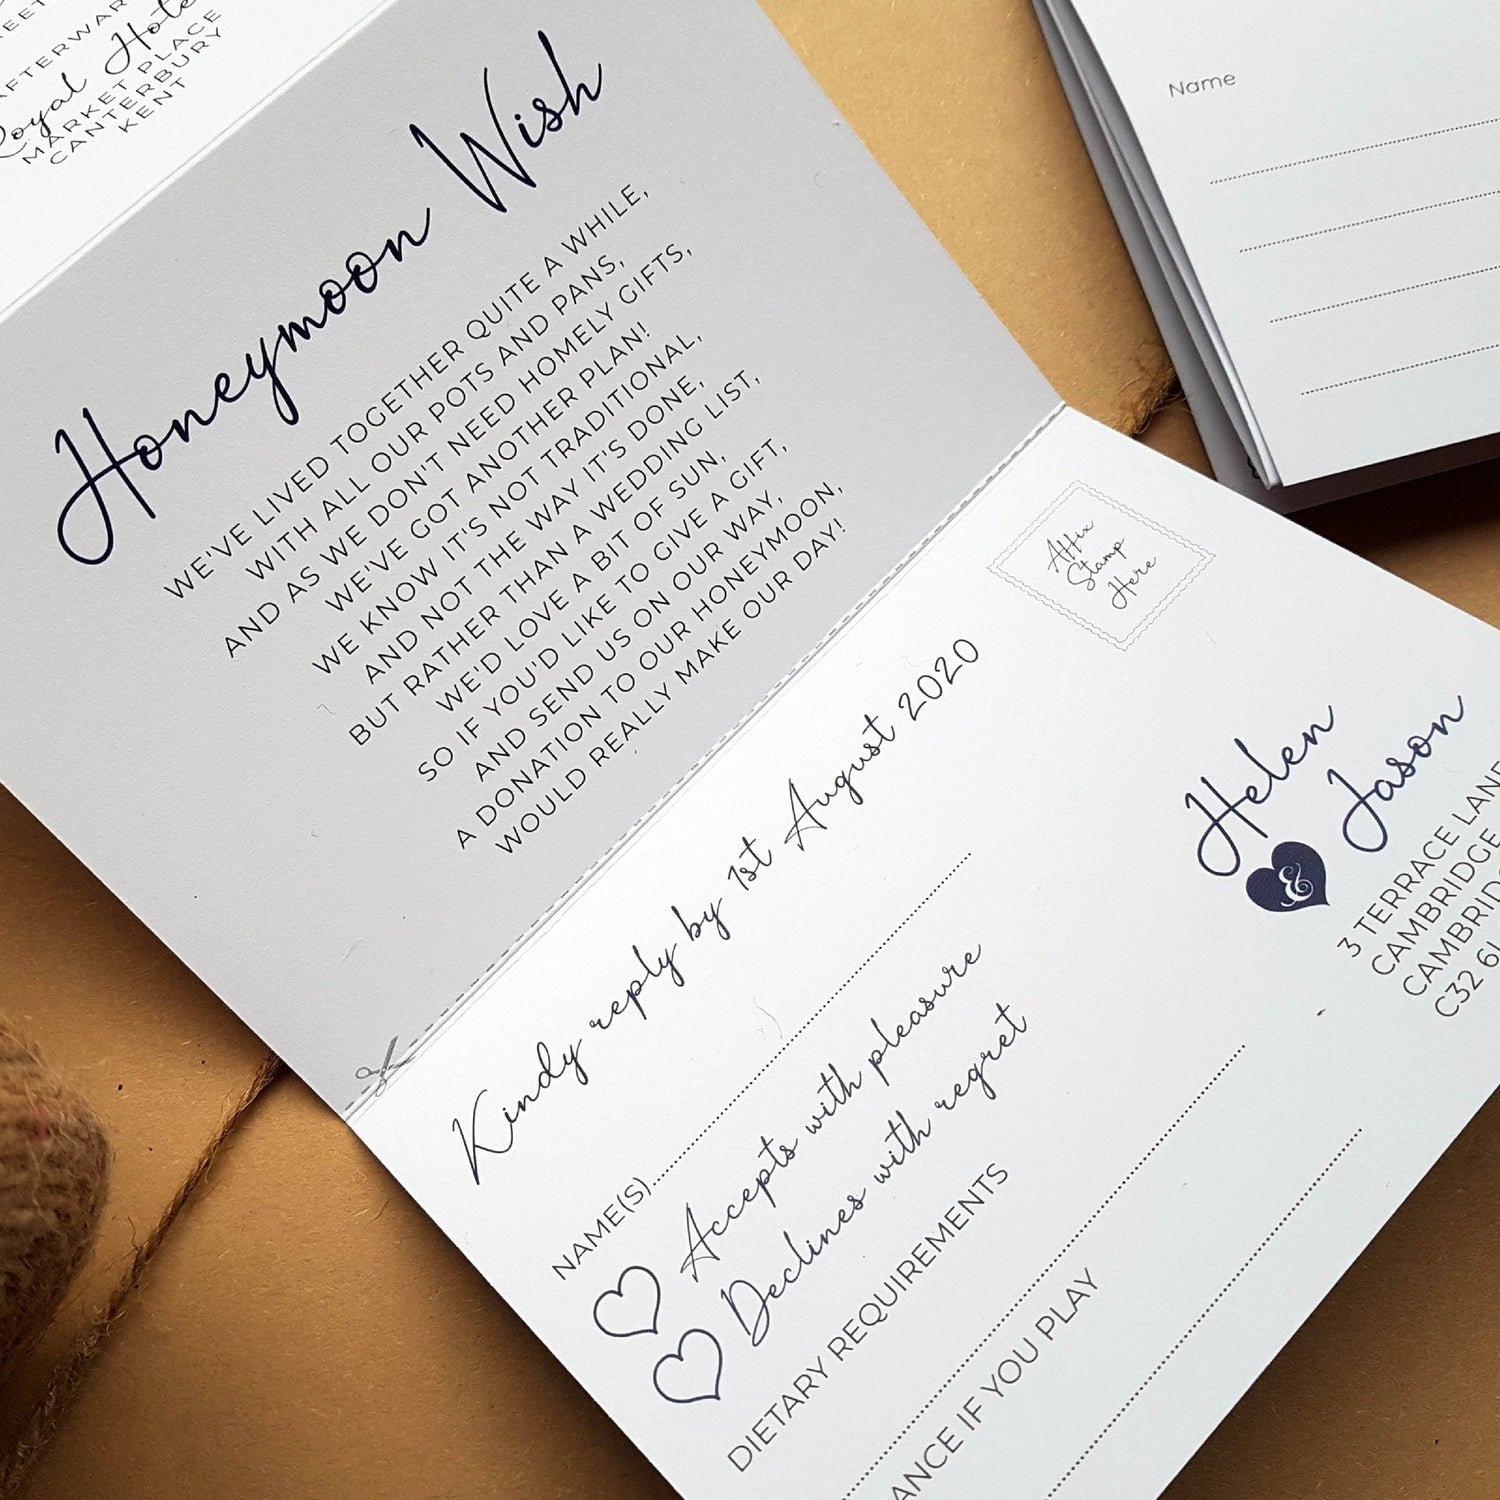 Royal
MARKET PLACE
CANTERBURY
KENT
Honeymoon Wish
WE'VE LIVED TOGETHER QUITE A WHILE,
WITH ALL OUR POTS AND PANS,
AND AS WE DON'T NEED HOMELY GIFTS,
WE'VE GOT ANOTHER PLAN!
WE KNOW IT'S NOT TRADITIONAL,
AND NOT THE WAY IT'S DONE,
BUT RATHER THAN A WEDDING LIST,
WE'D LOVE A BIT OF SUN,
SO IF YOU'D LIKE TO GIVE A GIFT,
AND SEND US ON OUR WAY,
A DONATION TO OUR HONEYMOON,
WOULD REALLY MAKE OUR DAY!
Name
Affix
Stamp
Here
Kindy reply by 1st August 2020
NAME(S)
Accepts with pleasure
Declines with regret
DIETARY REQUIREMENTS
ANCE IF YOU PLAY
Helen
&
Jason
3 TERRACE LANE
CAMBRIDGE
CAMBRIDG
C32 6